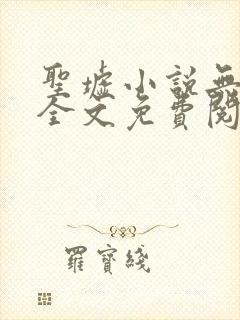 聖墟小說無
全文免費閱
羅寶綫